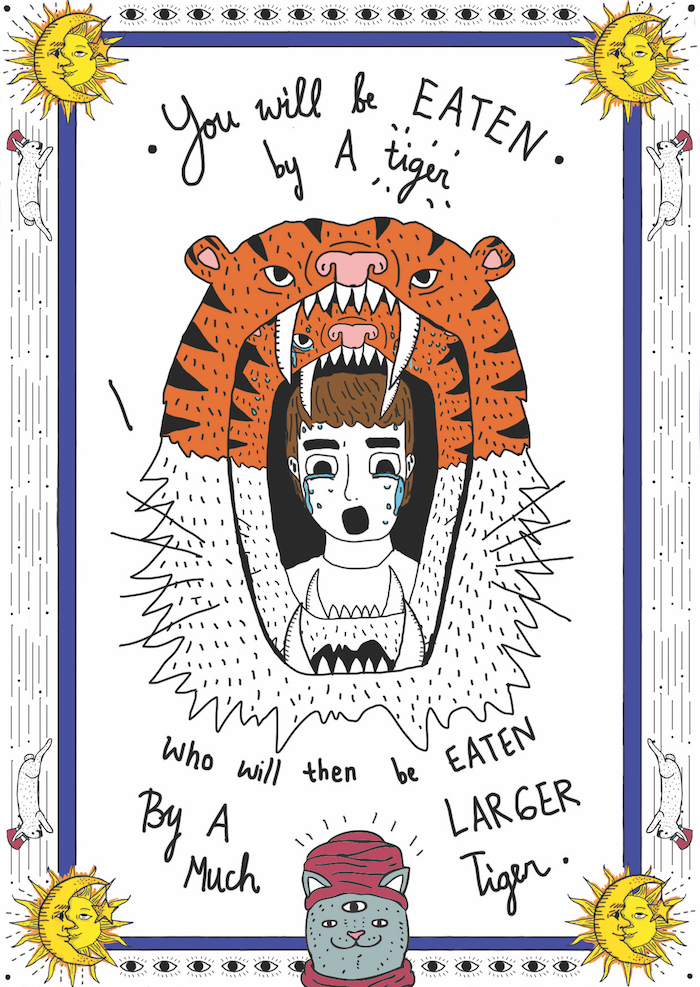 You will be EATEN.
by A tiger
who will then be EATEN
By A LARGER
Much Tiger.